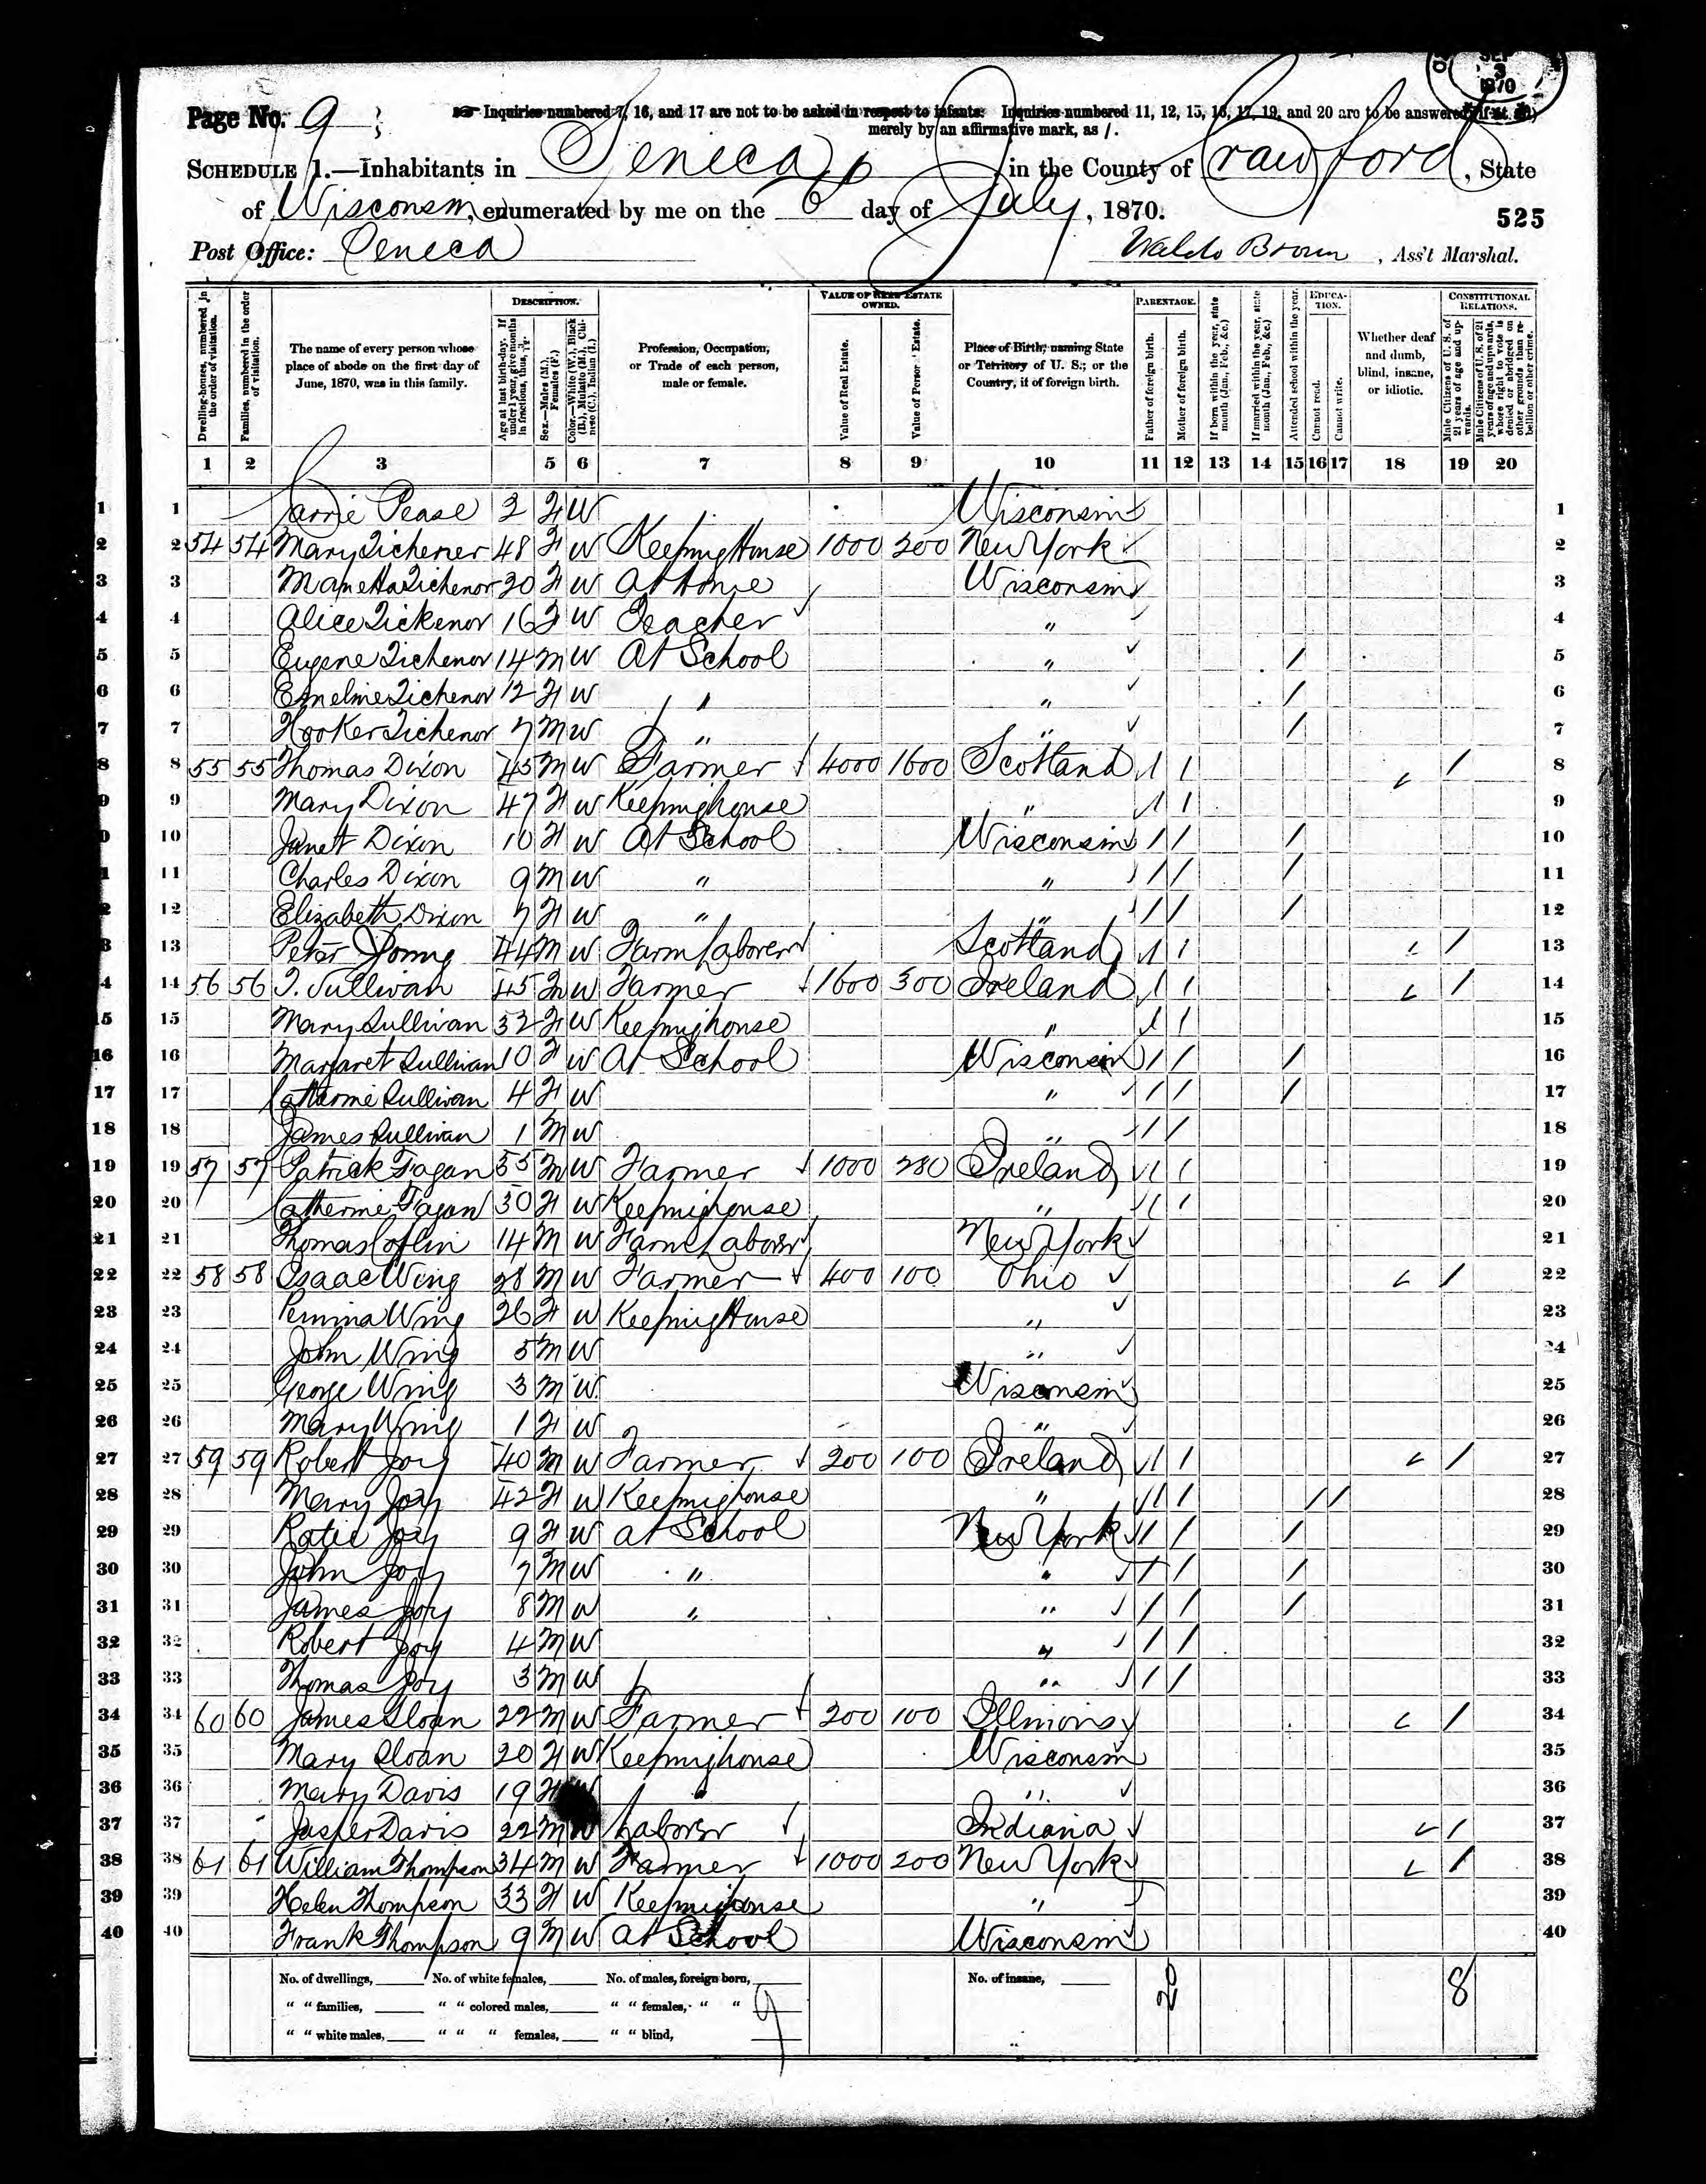 SEP
3
1870
Page No. 9
Inquiries numbered 7, 16, and 17 are not to be asked in respect to infants. Inquiries numbered 11, 12, 15, 16, 17, 19, and 20 are to be answered (if at all)
merely by an affirmative mark, as /.
SCHEDULE 1.—Inhabitants in Seneca, in the County of Crawford, State
of Wisconsin, enumerated by me on the 6 day of July, 1870.
525
Post Office: Seneca Waldo Brown, Ass't Marshal.
Dwelling-houses, numbered in the order of visitation.
Families, numbered in the order of visitation.
The name of every person whose place of abode on the first day of June, 1870, was in this family.
DESCRIPTION.
Age at last birth-day. If under 1 year, give months in fractions, thus,
Sex.—Males (M.), Females (F.)
Color.—White (W.), Black (B.), Mulatto (M.), Chinese (C.), Indian (I.)
Profession, Occupation, or Trade of each person, male or female.
VALUE OF REAL ESTATE OWNED.
Value of Real Estate.
Value of Personal Estate.
Place of Birth, naming State or Territory of U. S.; or the Country, if of foreign birth.
PARENTAGE.
Father of foreign birth.
Mother of foreign birth.
If born within the year, state month (Jan., Feb., &c.)
If married within the year, state month (Jan., Feb., &c.)
EDUCATION.
Attended school within the year.
Cannot read.
Cannot write.
Whether deaf and dumb, blind, insane, or idiotic.
CONSTITUTIONAL RELATIONS.
Male Citizens of U. S. of 21 years of age and upwards.
Male Citizens of U. S. of 21 years of age and upwards, whose right to vote is denied or abridged on other grounds than rebellion or other crime.
1 2 3 5 6 7 8 9 10 11 12 13 14 15 16 17 18 19 20
1 1 Pease 2 F W Wisconsin 1
2 2 54 54 Mary Tichener 48 F W Keeping House 1000 200 New York 2
3 3 Manetta Tichenor 20 F W At home Wisconsin 3
4 4 Alice Tickenor 16 F W Teacher " 4
5 5 Eugene Tichenor 14 M W At School " / 5
6 6 Emeline Tichenor 12 F W " " / 6
7 7 Hooker Tichenor 7 M W " " / 7
8 8 55 55 Thomas Dixon 45 M W Farmer 4000 1600 Scotland / / / 8
9 9 Mary Dixon 47 F W Keeping house " / / 9
0 10 Janet Dixon 10 F W At School Wisconsin / / / 10
1 11 Charles Dixon 9 M W " " / / / 11
2 12 Elizabeth Dixon 7 F W " " / / / 12
3 13 Peter Young 44 M W Farm Laborer Scotland / / / 13
4 14 56 56 T. Sullivan 45 M W Farmer 1600 300 Ireland / / / 14
15 15 Mary Sullivan 32 F W Keeping house " / / 15
16 16 Margaret Sullivan 10 F W At School Wisconsin / / / 16
17 17 Catharine Sullivan 4 F W " / / / 17
18 18 James Sullivan 1 M W " / / 18
19 19 57 57 Patrick Fagan 55 M W Farmer 1000 280 Ireland / / 19
20 20 Catherine Fagan 30 F W Keeping house " / / 20
21 21 Thomas Coflin 14 M W Farm Laborer New York 21
22 22 58 58 Isaac Wing 28 M W Farmer 400 100 Ohio / 22
23 23 Wing 26 F W Keeping House " 23
24 24 John Wing 5 M W " 24
25 25 George Wing 3 M W Wisconsin 25
26 26 Mary Wing 1 F W " 26
27 27 59 59 Robert Joy 40 M W Farmer 200 100 Ireland / / / 27
28 28 Mary Joy 42 F W Keeping house " / / / / 28
29 29 Katie Joy 9 F W at School New York / / / 29
30 30 John Joy 7 M W " " / / / 30
31 31 James Joy 8 M W " " / / / 31
32 32 Robert Joy 4 M W " / / 32
33 33 Thomas Joy 3 M W " / / 33
34 34 60 60 James Sloan 22 M W Farmer 200 100 Illinois / 34
35 35 Mary Sloan 20 F W Keeping house Wisconsin 35
36 36 Mary Davis 19 F W " " 36
37 37 Jasper Davis 22 M W Laborer Indiana / 37
38 38 61 61 William Thompson 34 M W Farmer 1000 200 New York / 38
39 39 Helen Thompson 33 F W Keeping house " 39
40 40 Frank Thompson 9 M W at School Wisconsin 40
No. of dwellings, No. of white females, No. of males, foreign born, No. of insane,
" " families, " " colored males, " " females, " " 9 20 8
" " white males, " " " females, " " blind,